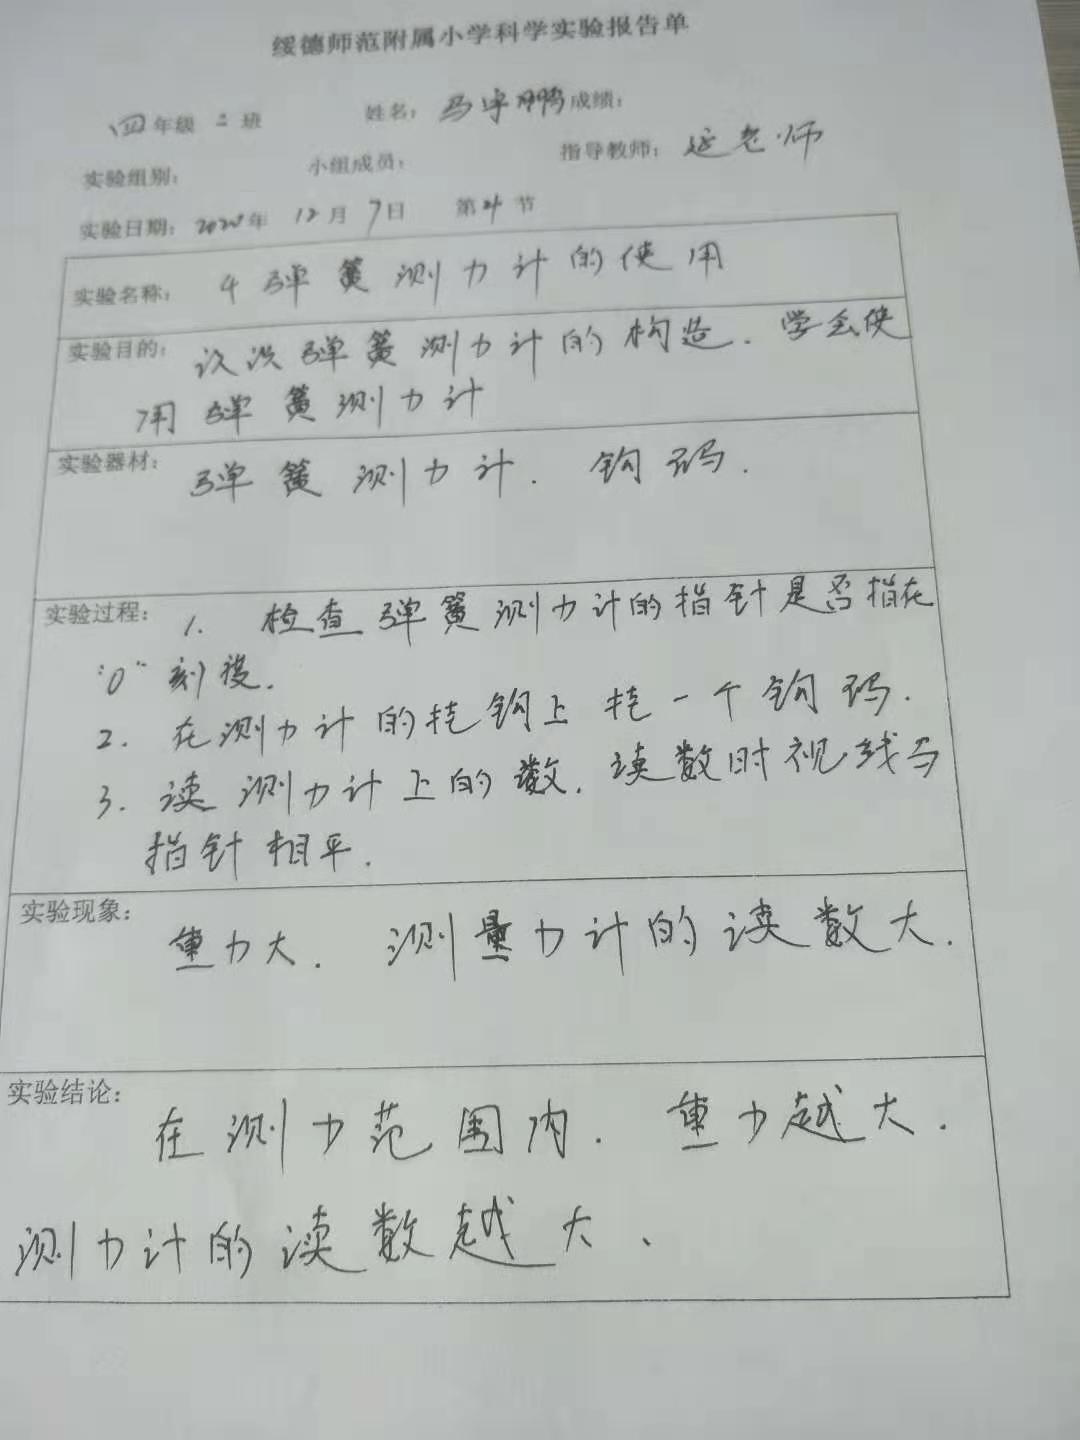 绥德师范附属小学科学实验报告单
四年级 二 班 姓名：马宇鹏 成绩：
实验组别： 小组成员： 指导教师：延老师
实验日期：2020年 12月 7日 第4节
实验名称： 4 弹簧测力计的使用
实验目的： 认识弹簧测力计的构造．学会使
用弹簧测力计
实验器材： 弹簧测力计． 钩码．
实验过程： 1. 检查弹簧测力计的指针是否指在
"0"刻度.
2. 在测力计的挂钩上挂一个钩码.
3. 读测力计上的数. 读数时视线与
指针相平.
实验现象：
重力大. 测量力计的读数大.
实验结论：
在测力范围内. 重力越大.
测力计的读数越大、